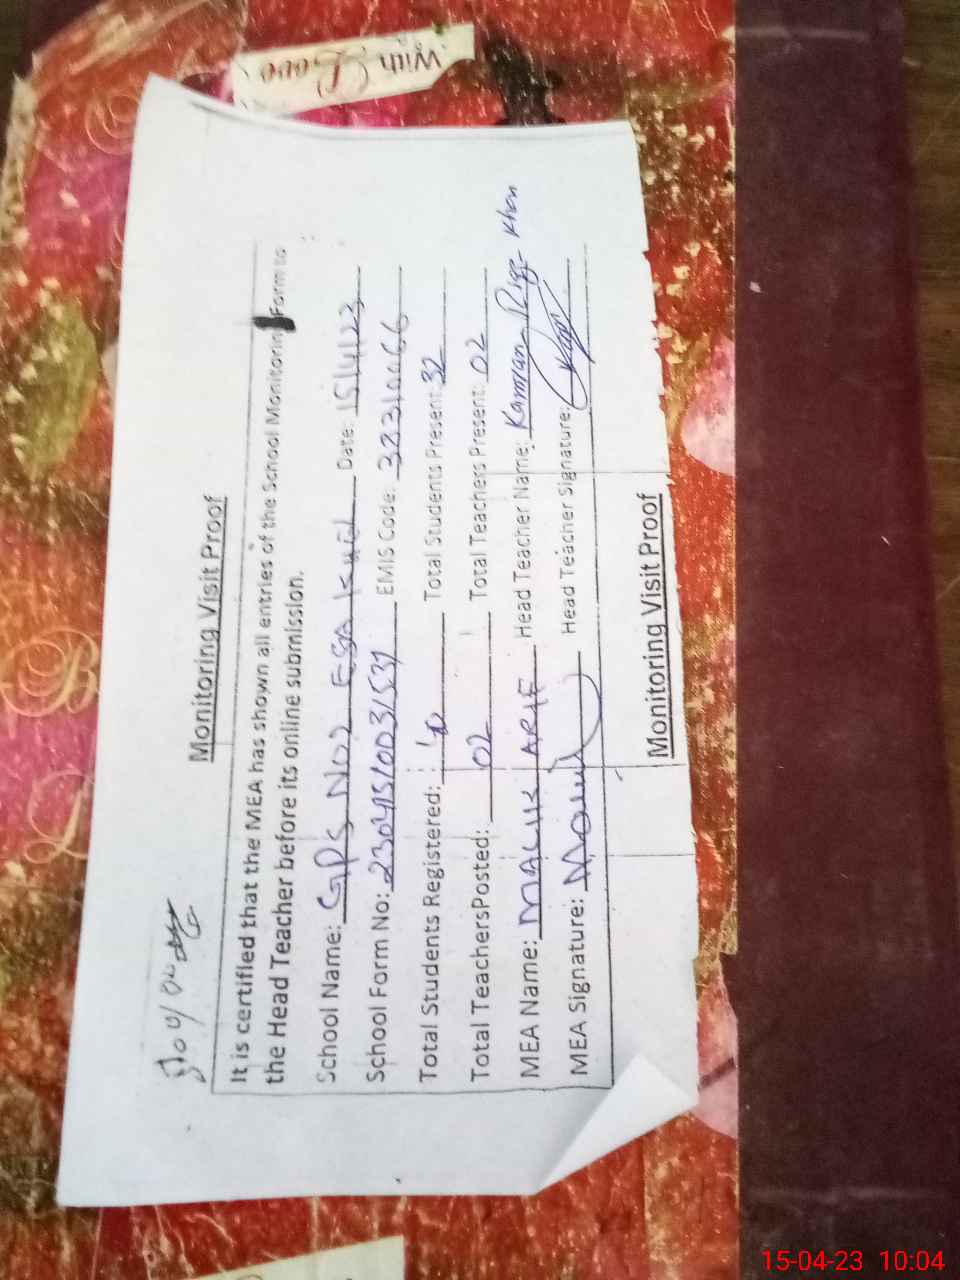 With Love
Monitoring Visit Proof
It is certified that the MEA has shown all entries of the School Monitoring Form to
the Head Teacher before its online submission.
School Name: GPS NO2 ESA Date: 15/4/23
School Form No: EMIS Code:
Total Students Registered: Total Students Present: 32
Total TeachersPosted: 02 Total Teachers Present: 02
MEA Name: MALIK ARIF Head Teacher Name: Kamran Khan
MEA Signature: Head Teacher Signature:
Monitoring Visit Proof
15-04-23 10:04